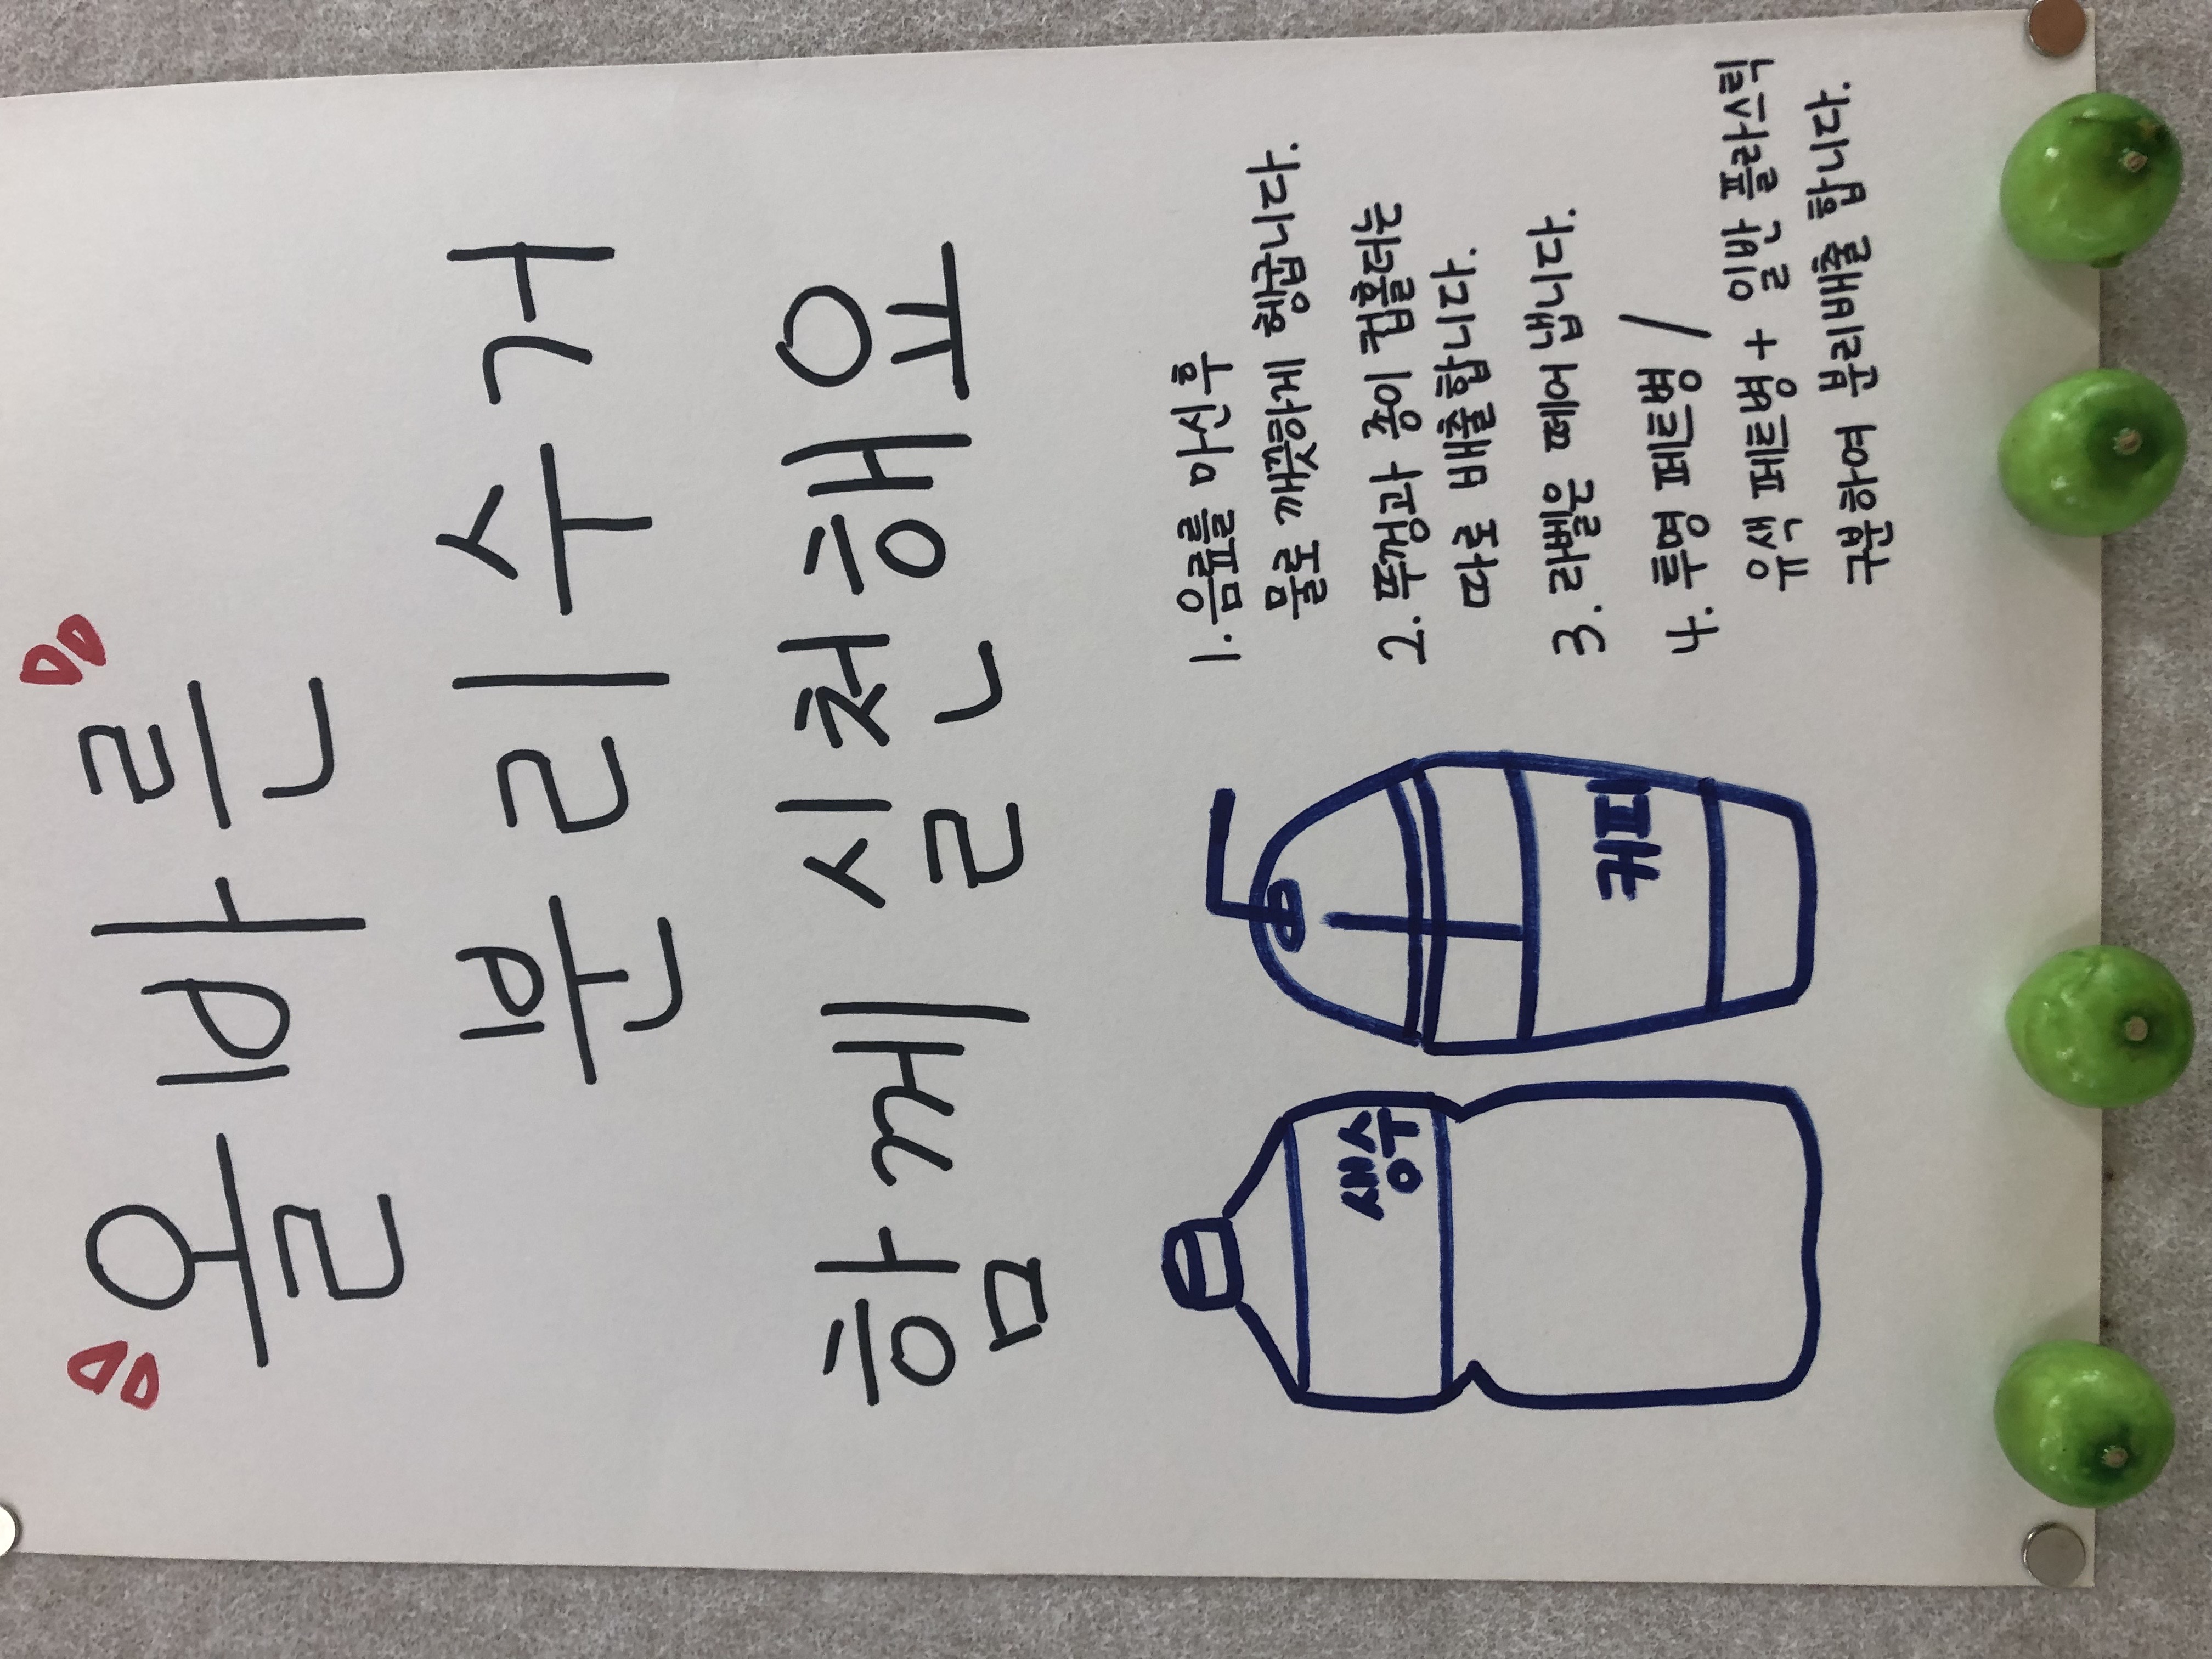 올바른
분리수거
함께 실천해요
1. 음료를 마신 후
물로 깨끗하게 헹굽니다.
2. 뚜껑과 종이
따로 배출합니다.
3. 라벨을 떼어 냅니다.
4. 투명 페트병 /
유색 페트병 +
구분하여 분리배출 합니다.
생수
커피